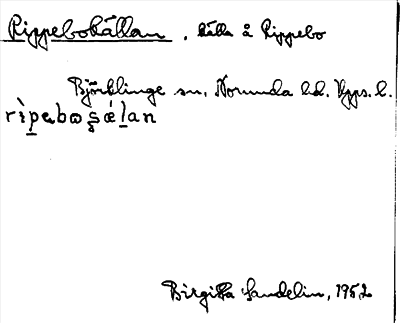 Rippebokällan, källa å Rippebo
Björklinge sn, Norunda hd. Upps. l.
rìpaboşǽlan
Birgitta Sandelin, 1952